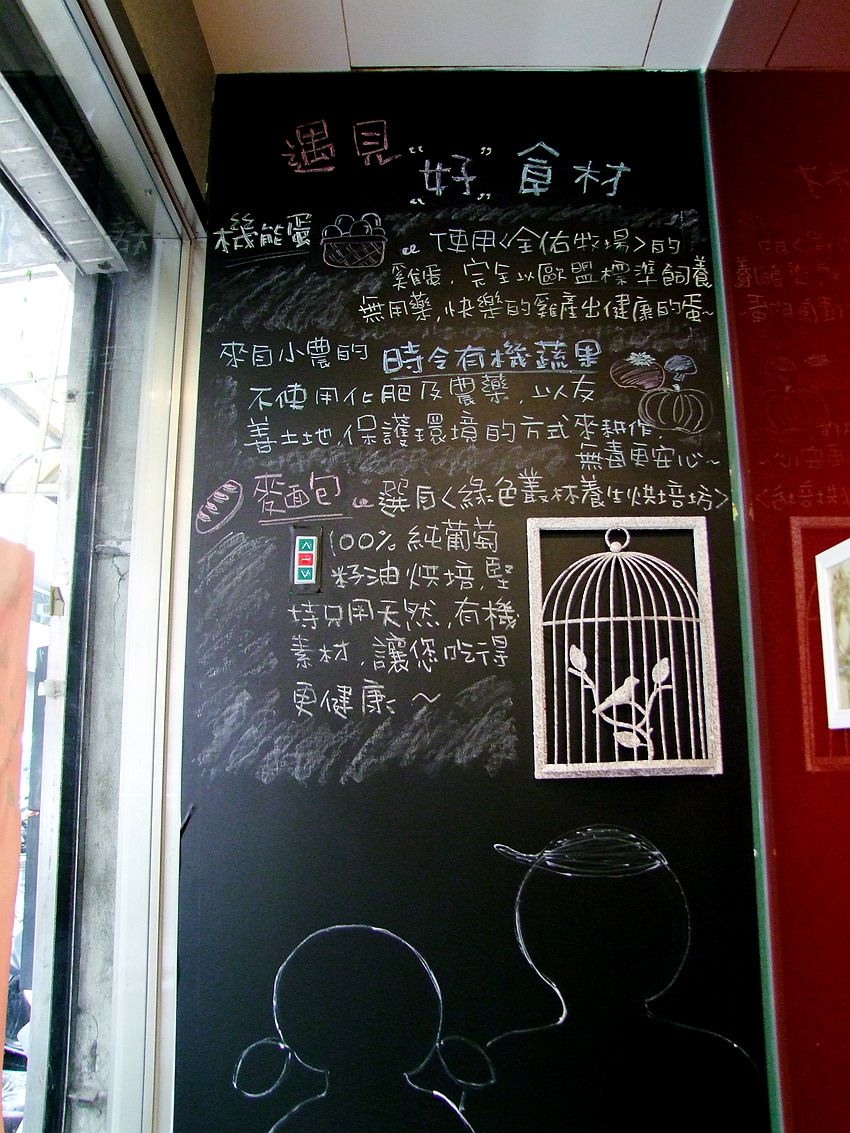 遇見"好"食材
機能蛋 使用<全佑牧場>的
雞蛋,完全以歐盟標準飼養
無用藥,快樂的雞產出健康的蛋~
來自小農的 時令有機蔬果
不使用化肥及農藥,以友
善土地,保護環境的方式來耕作,
無毒更安心~
麥面包 選自<綠色叢林養生烘培坊>
100%純葡萄
籽油烘培,堅
持只用天然,有機
素材,讓您吃得
更健康 ~